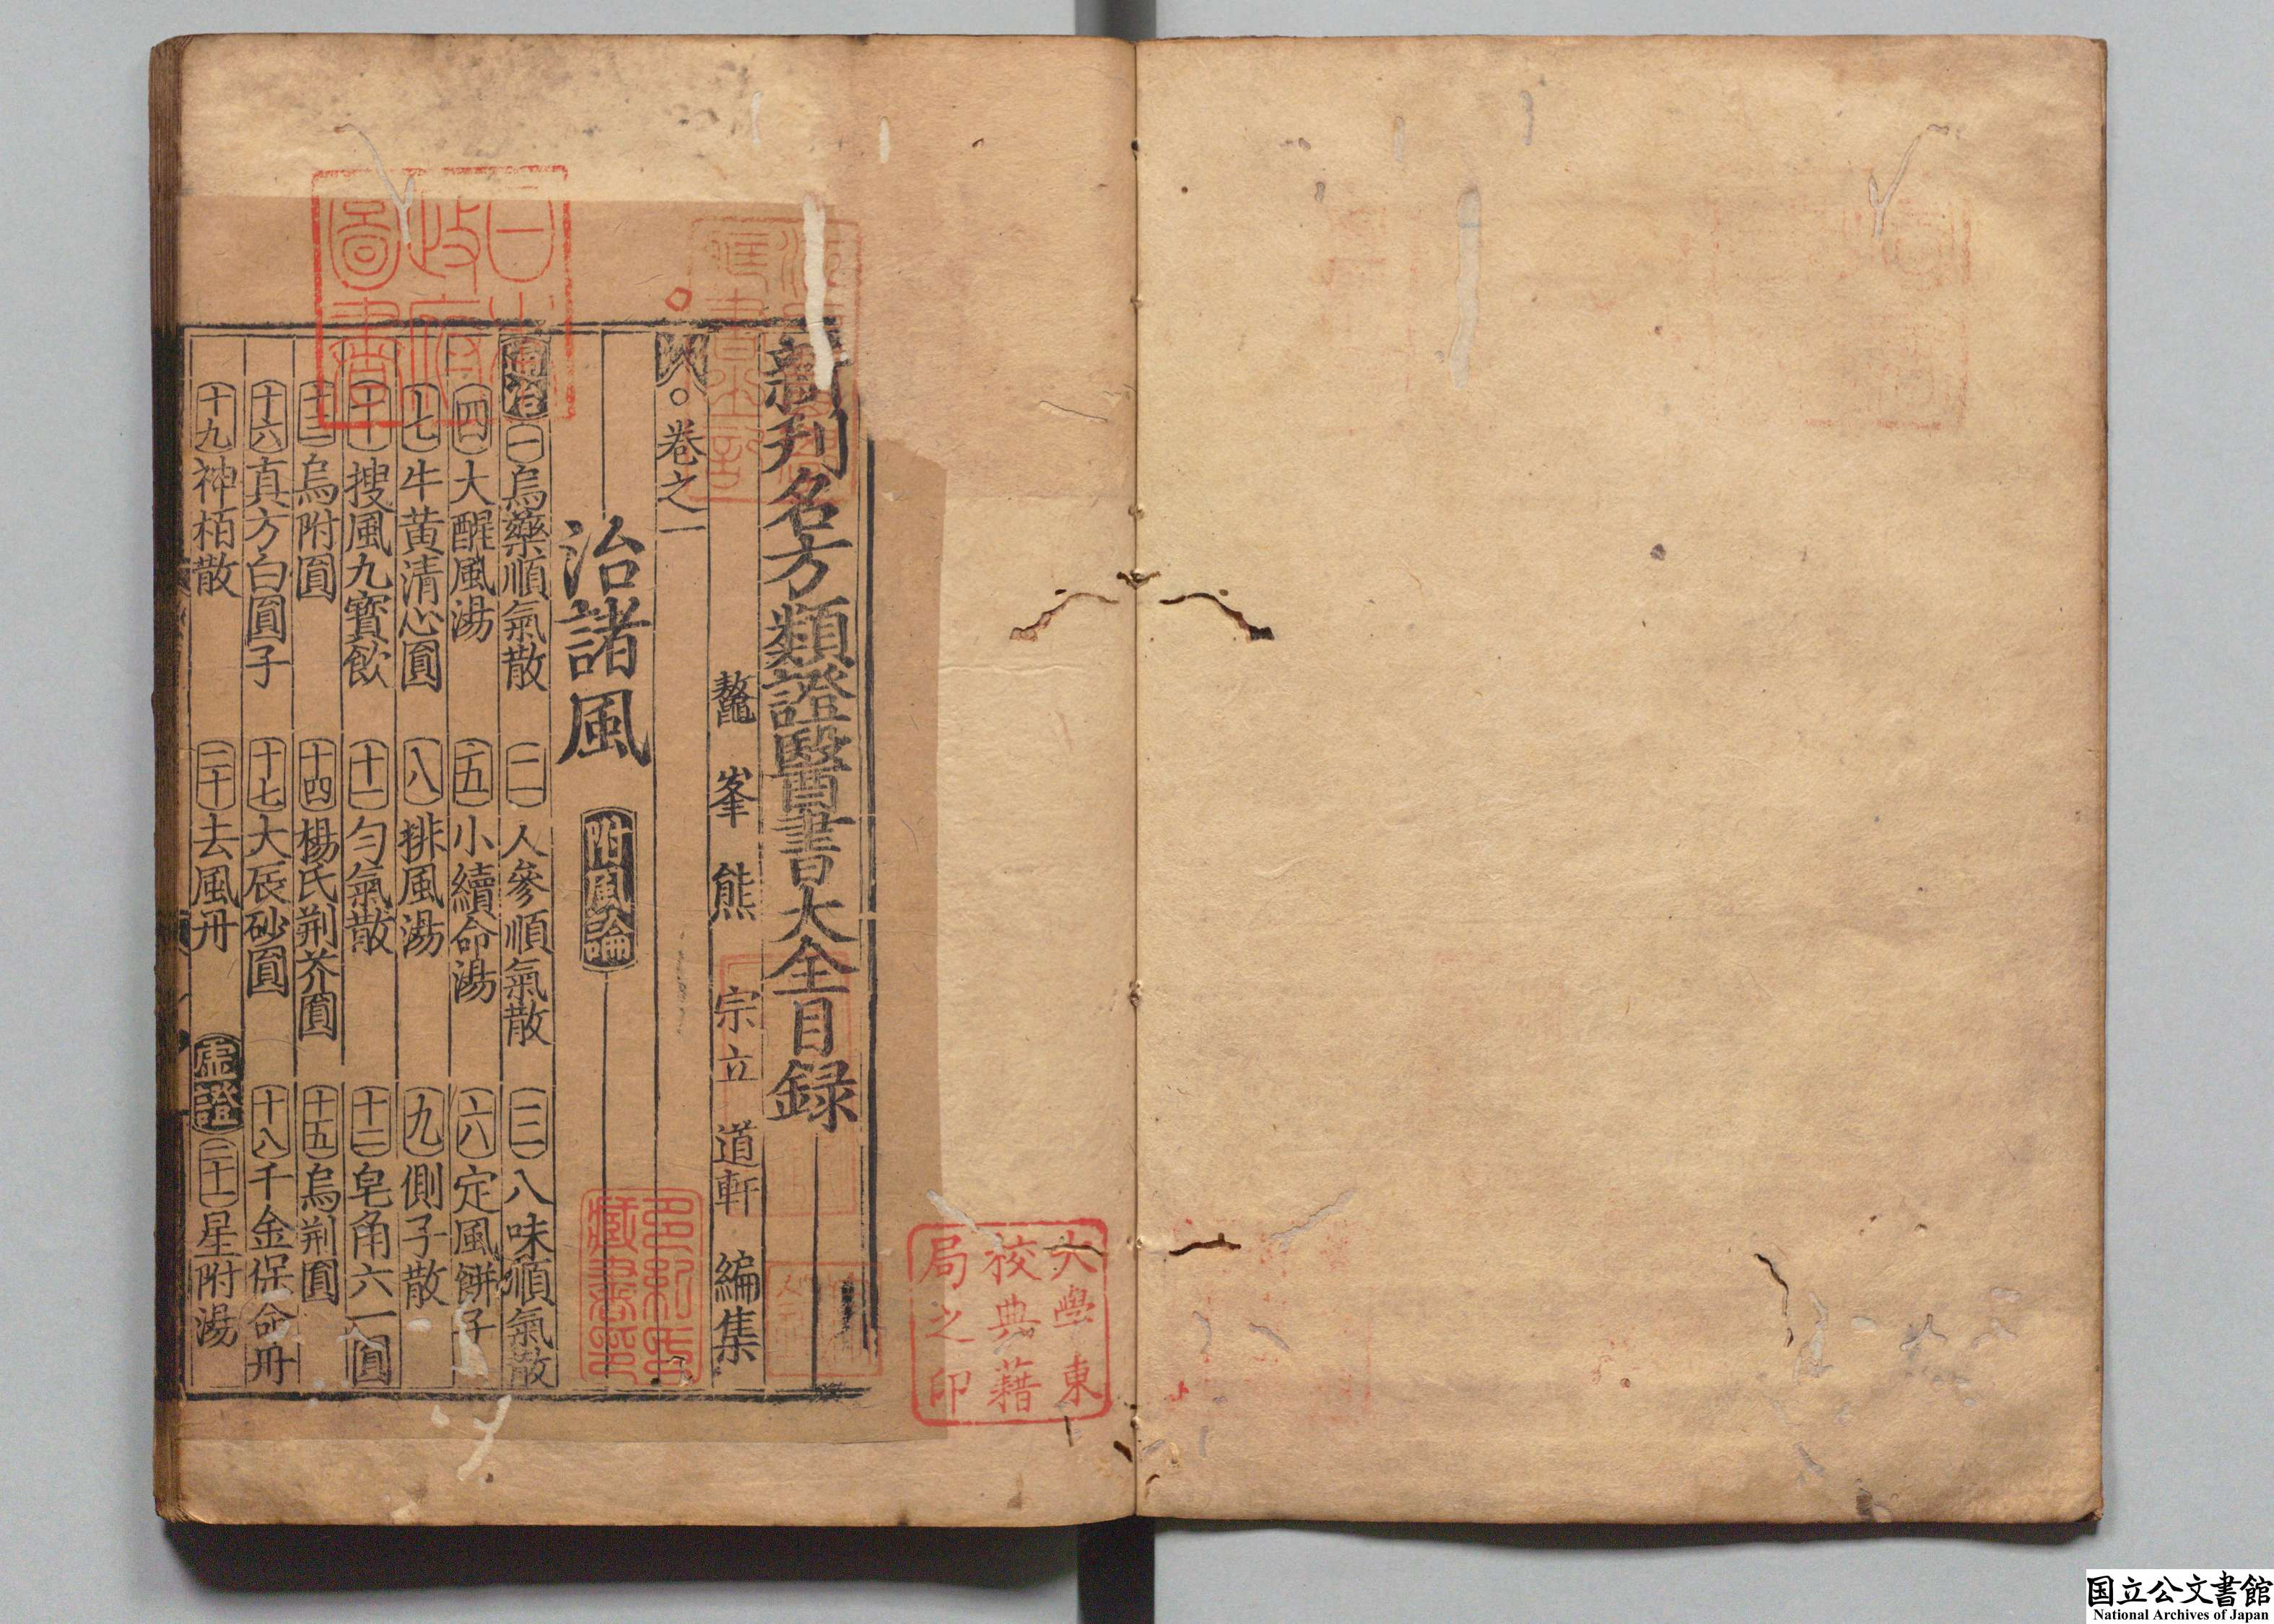 新刊名方類證醫書大全目録
鰲峯熊宗立道軒編集
○卷之一
治諸風 附風論
通治 一 烏藥順氣散 二 人參順氣散 三 八味順氣散
四 大醒風湯 五 小續命湯 六 定風餅子
七 牛黄清心圓 八 排風湯 九 側子散
十 搜風九寳飲 十一 勻氣散 十二 皂角六一圓
十三 烏附圓 十四 楊氏荆芥圓 十五 烏荆圓
十六 真方白圓子 十七 大辰砂圓 十八 千金保命丹
十九 神栢散 二十 去風丹 虚證 二十一 星附湯
大學東
校典藉
局之印
日本
政府
圖書
多紀氏
藏書印
国立公文書館
National Archives of Japan